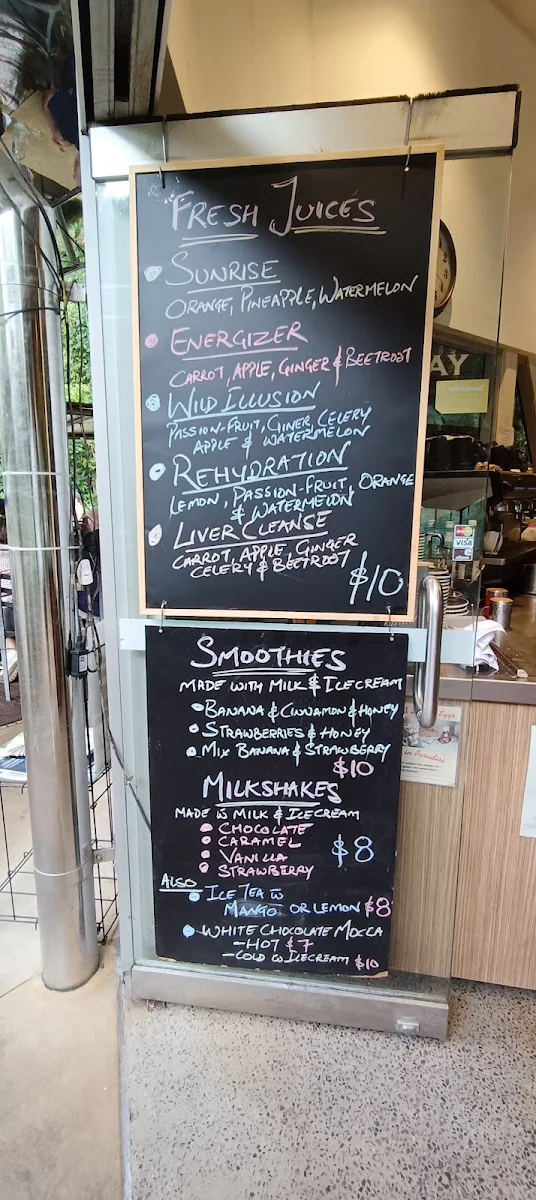 FRESH JUICES
SUNRISE
ORANGE, PINEAPPLE, WATERMELON
ENERGIZER
CARROT, APPLE, GINGER & BEETROOT
WILD ILLUSION
PASSION-FRUIT, GINER, CELERY
APPLE & WATERMELON
REHYDRATION
LEMON, PASSION-FRUIT, ORANGE
& WATERMELON
LIVER CLEANSE
CARROT, APPLE, GINGER
CELERY & BEETROOT
$10
SMOOTHIES
MADE WITH MILK & ICECREAM
BANANA & CINNAMON & HONEY
STRAWBERRIES & HONEY
MIX BANANA & STRAWBERRY
$10
MILKSHAKES
MADE W MILK & ICECREAM
CHOCOLATE
CARAMEL
VANILLA
STRAWBERRY
$8
ALSO
ICE TEA W
MANGO OR LEMON $8
WHITE CHOCOLATE MOCCA
-HOT $7
-COLD W ICECREAM $10
AY
VISA
Eggs
in Paradise